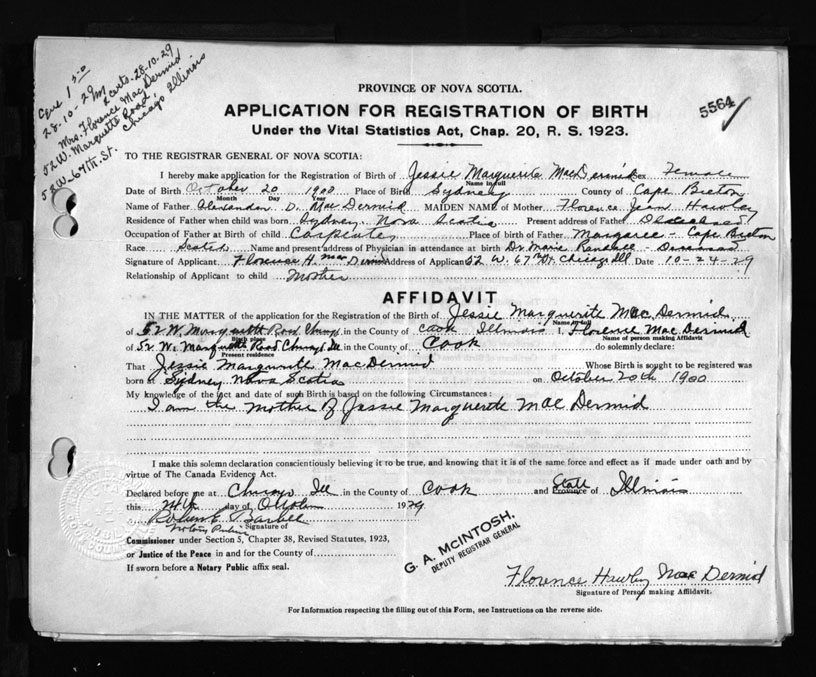 28-10-29
Mrs. Florence MacDermid
52 W. Marquette Road,
Chicago Illinois
52 W-67th. St.
5564
PROVINCE OF NOVA SCOTIA.
APPLICATION FOR REGISTRATION OF BIRTH
Under the Vital Statistics Act, Chap. 20, R. S. 1923.
TO THE REGISTRAR GENERAL OF NOVA SCOTIA:
I hereby make application for the Registration of Birth of Jessie Marguerite MacDermid Sex Female
Name in full
Date of Birth October 20 1900 Place of Birth Sydney County of Cape Breton
Month Day Year
Name of Father Alexander D. MacDermid MAIDEN NAME of Mother Florence Jean Hawley
Residence of Father when child was born Sydney Nova Scotia Present address of Father Deceased
Occupation of Father at Birth of child Carpenter Place of birth of Father Margaree - Cape Breton
Race Scotch Name and present address of Physician in attendance at birth Dr Marie - Deceased
Signature of Applicant Florence H. MacDermid Address of Applicant 52 W. 67th St. Chicago Ill Date 10-24-29
Relationship of Applicant to child Mother
AFFIDAVIT
IN THE MATTER of the application for the Registration of the Birth of Jessie Marguerite MacDermid
Name in full
of 52 W. Marquette Road Chicago in the County of Cook Illinois I, Florence MacDermid
Birth place
Name of person making Affidavit
of 52 W. Marquette Road Chicago Ill. in the County of Cook do solemnly declare:
Present residence
That Jessie Marguerite MacDermid Whose Birth is sought to be registered was
born at Sydney Nova Scotia on October 20th 1900
My knowledge of the fact and date of such Birth is based on the following Circumstances:
I am the mother of Jessie Marguerite MacDermid
I make this solemn declaration conscientiously believing it to be true, and knowing that it is of the same force and effect as if made under oath and by
virtue of The Canada Evidence Act.
Declared before me at Chicago Ill in the County of Cook and State Province of Illinois
this 24th day of October 1929
Robert E.
Notary Public Signature of
Commissioner under Section 5, Chapter 38, Revised Statutes, 1923,
or Justice of the Peace in and for the County of
If sworn before a Notary Public affix seal.
G. A. McINTOSH,
DEPUTY REGISTRAR GENERAL
Florence Hawley MacDermid
Signature of Person making Affidavit.
For Information respecting the filling out of this Form, see Instructions on the reverse side.